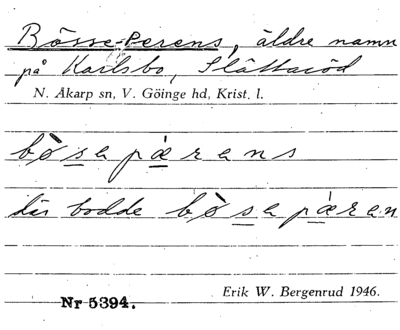 Bösse-Perens, äldre namn
på Karlsbo, Slättaröd
N. Åkarp sn, V. Göinge hd, Krist. l.
bò̀sapæ̀rans
där bodde bò̀sapæ̀ran
Erik W. Bergenrud 1946.
Nr 5394.